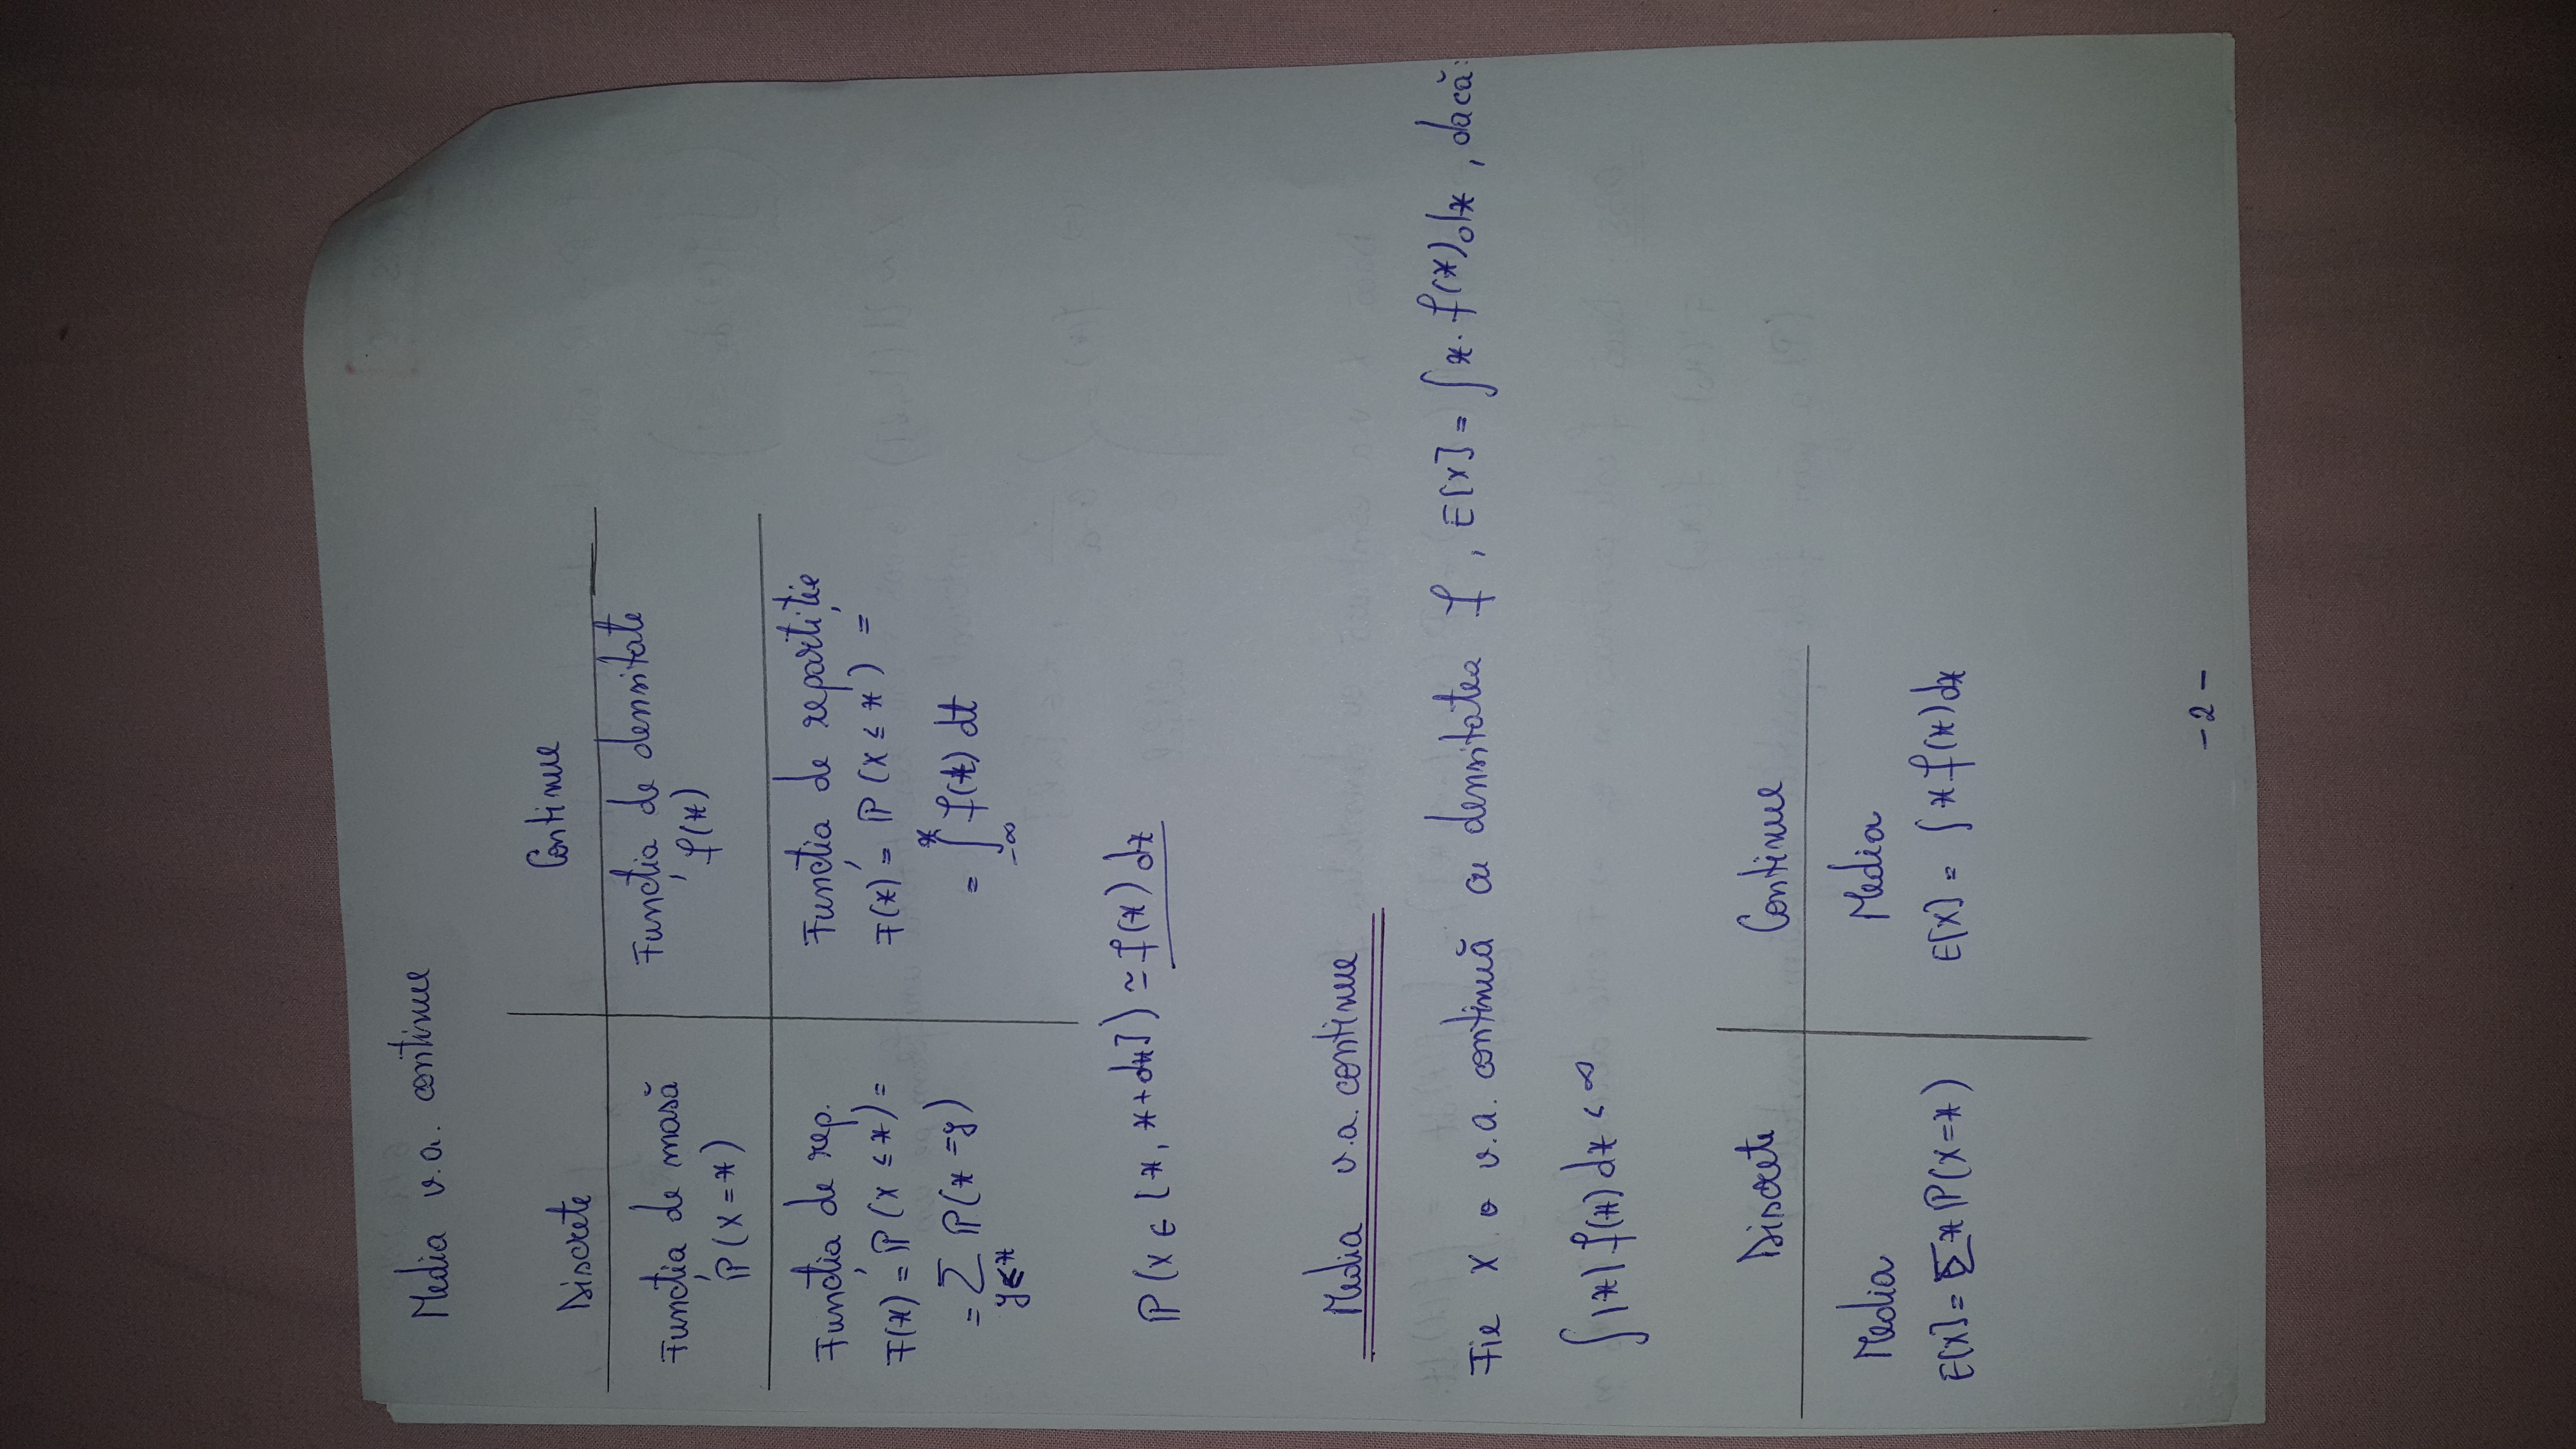 Media v.a. continue
Discrete | Continue
Funcția de masă | Funcția de densitate
ℙ(X = x) | f(x)
Funcția de rep. | Funcția de repartiție
F(x) = ℙ(X ≤ x) = | F(x) = ℙ(X ≤ x) =
= ∑ ℙ(x = y) | = ∫ f(t) dt
y≤x | -∞ x
ℙ(X ∈ [x, x+dx]) ≃ f(x) dx
Media v.a. continue
Fie X o v.a. continuă cu densitatea f, E[X] = ∫ x · f(x) dx, dacă:
∫ |x| f(x) dx < ∞
Discrete | Continue
Media | Media
E[X] = ∑ x ℙ(X = x) | E[X] = ∫ x f(x) dx
- 2 -